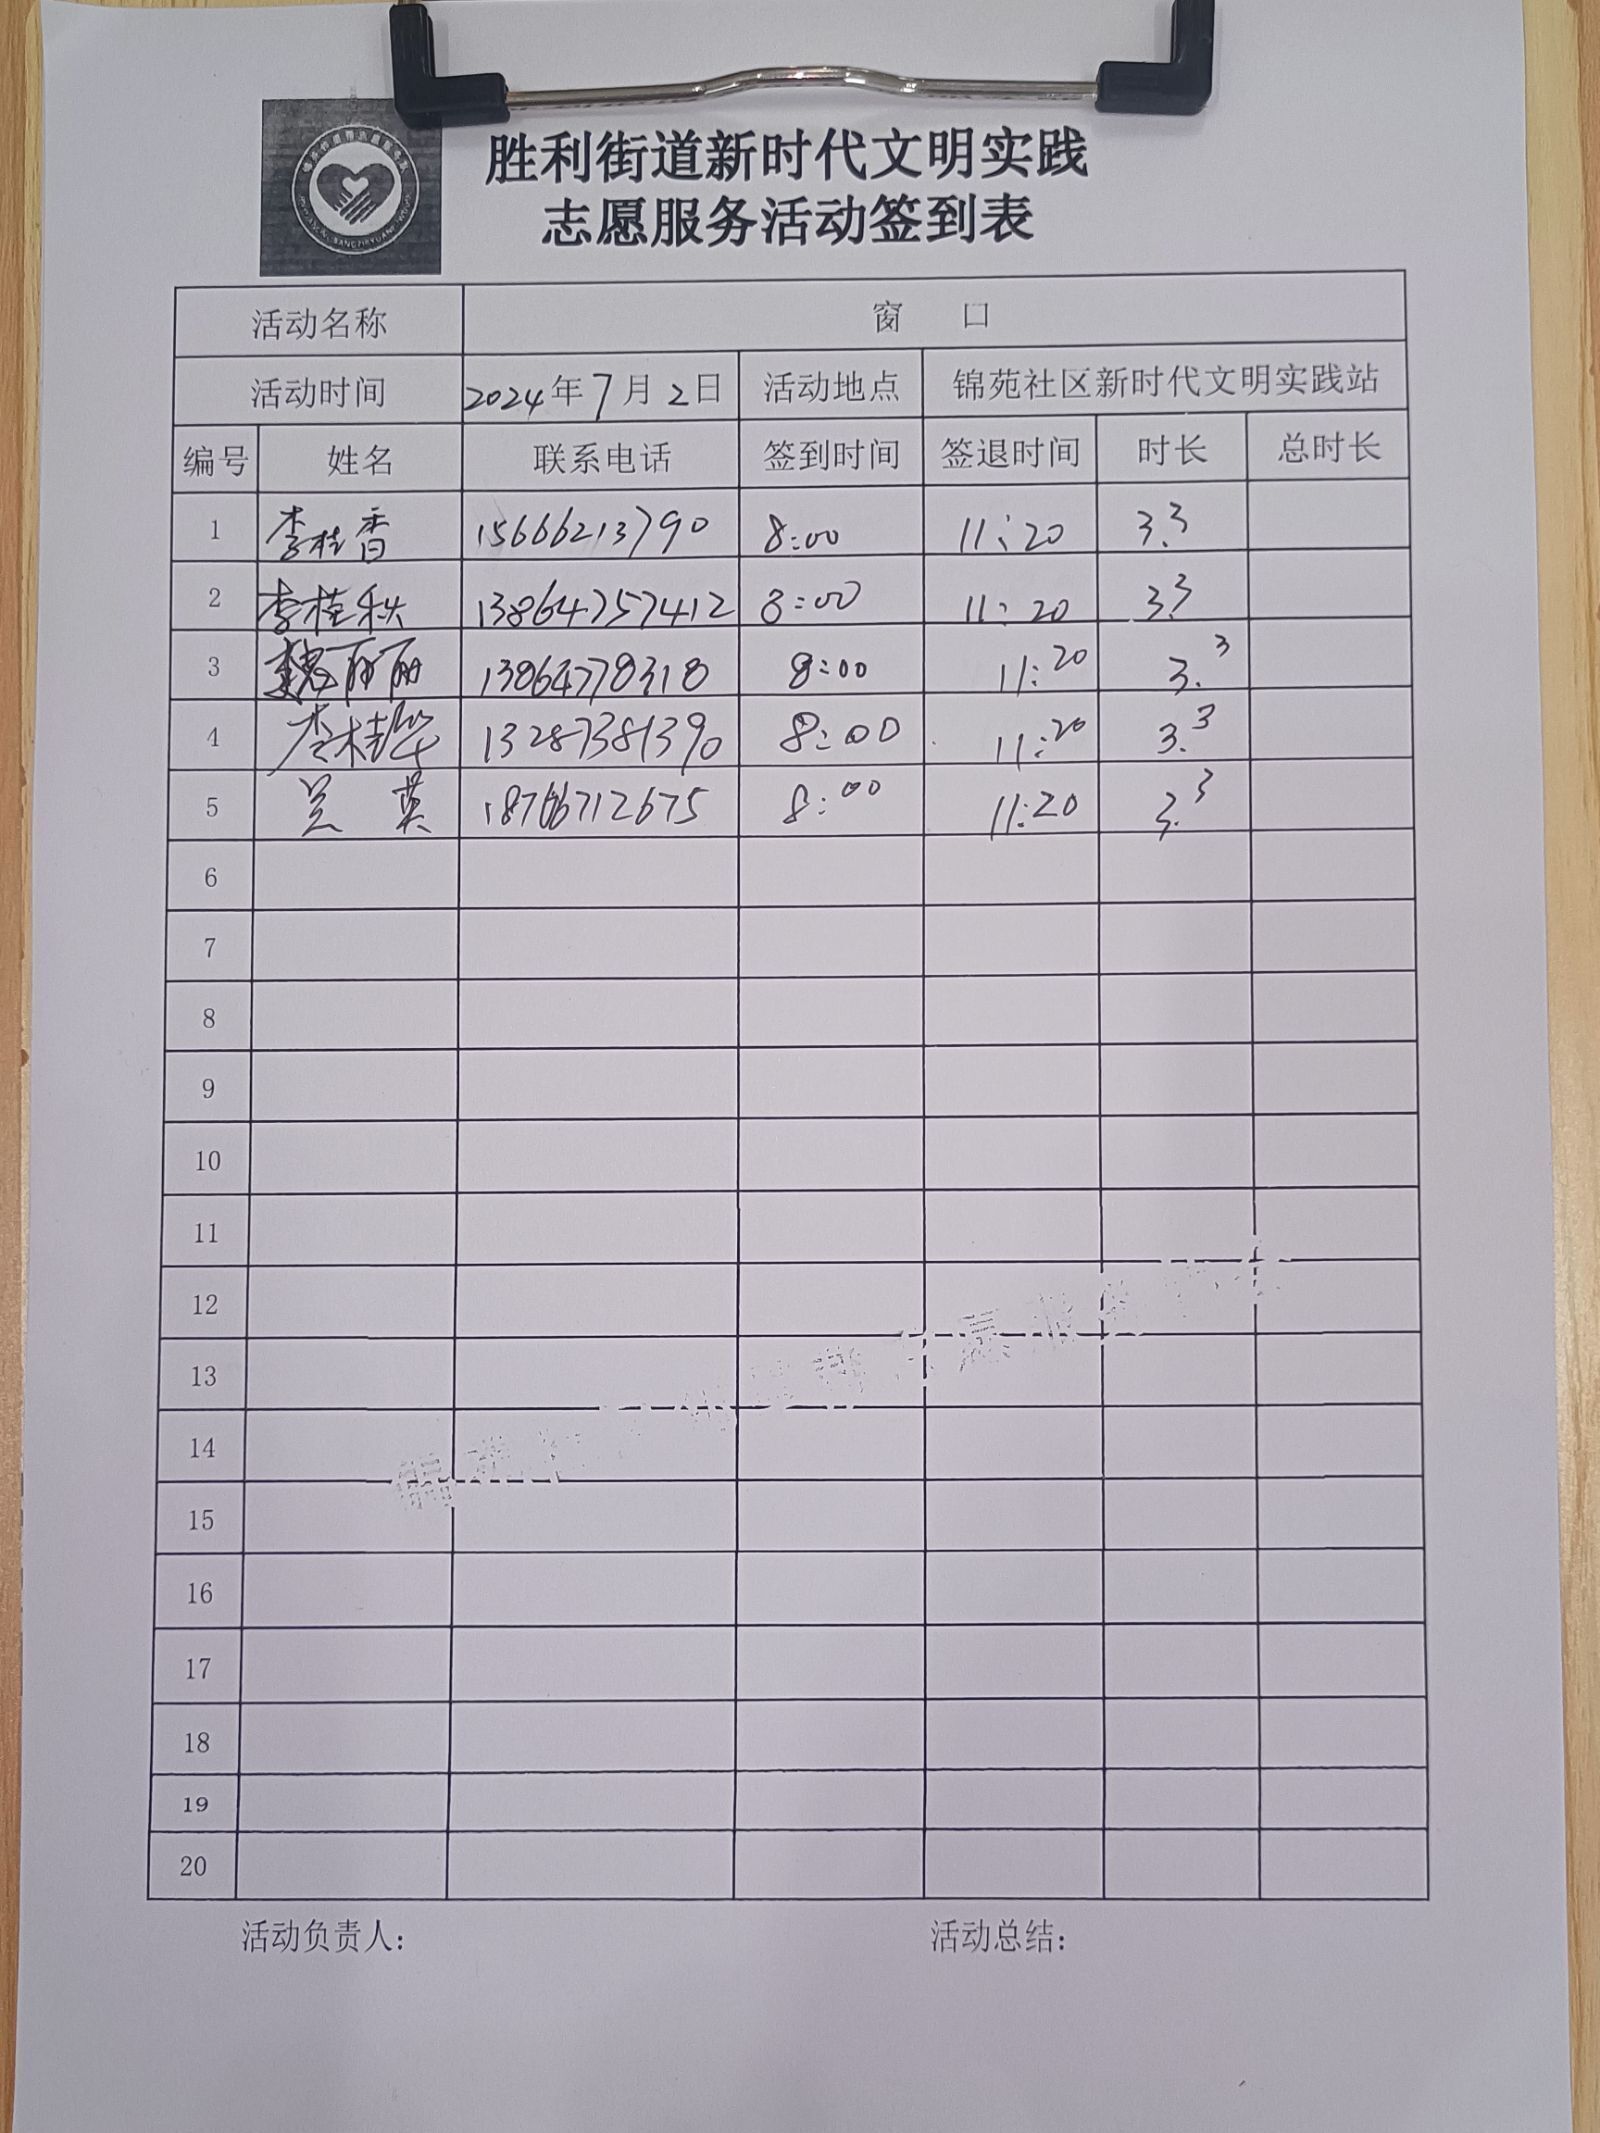 胜利街道新时代文明实践
志愿服务活动签到表
活动名称 窗 口
活动时间 2024年7月2日 活动地点 锦苑社区新时代文明实践站
编号 姓名 联系电话 签到时间 签退时间 时长 总时长
1 李桂香 15666213790 8:00 11:20 3.3
2 李桂秋 13864757412 8:00 11:20 3.3
3 魏丽丽 13864778318 8:00 11:20 3.3
4 李桂华 13287381390 8:00 11:20 3.3
5 吴英 18766712675 8:00 11:20 3.3
6
7
8
9
10
11
12
13
14
15
16
17
18
19
20
活动负责人: 活动总结: